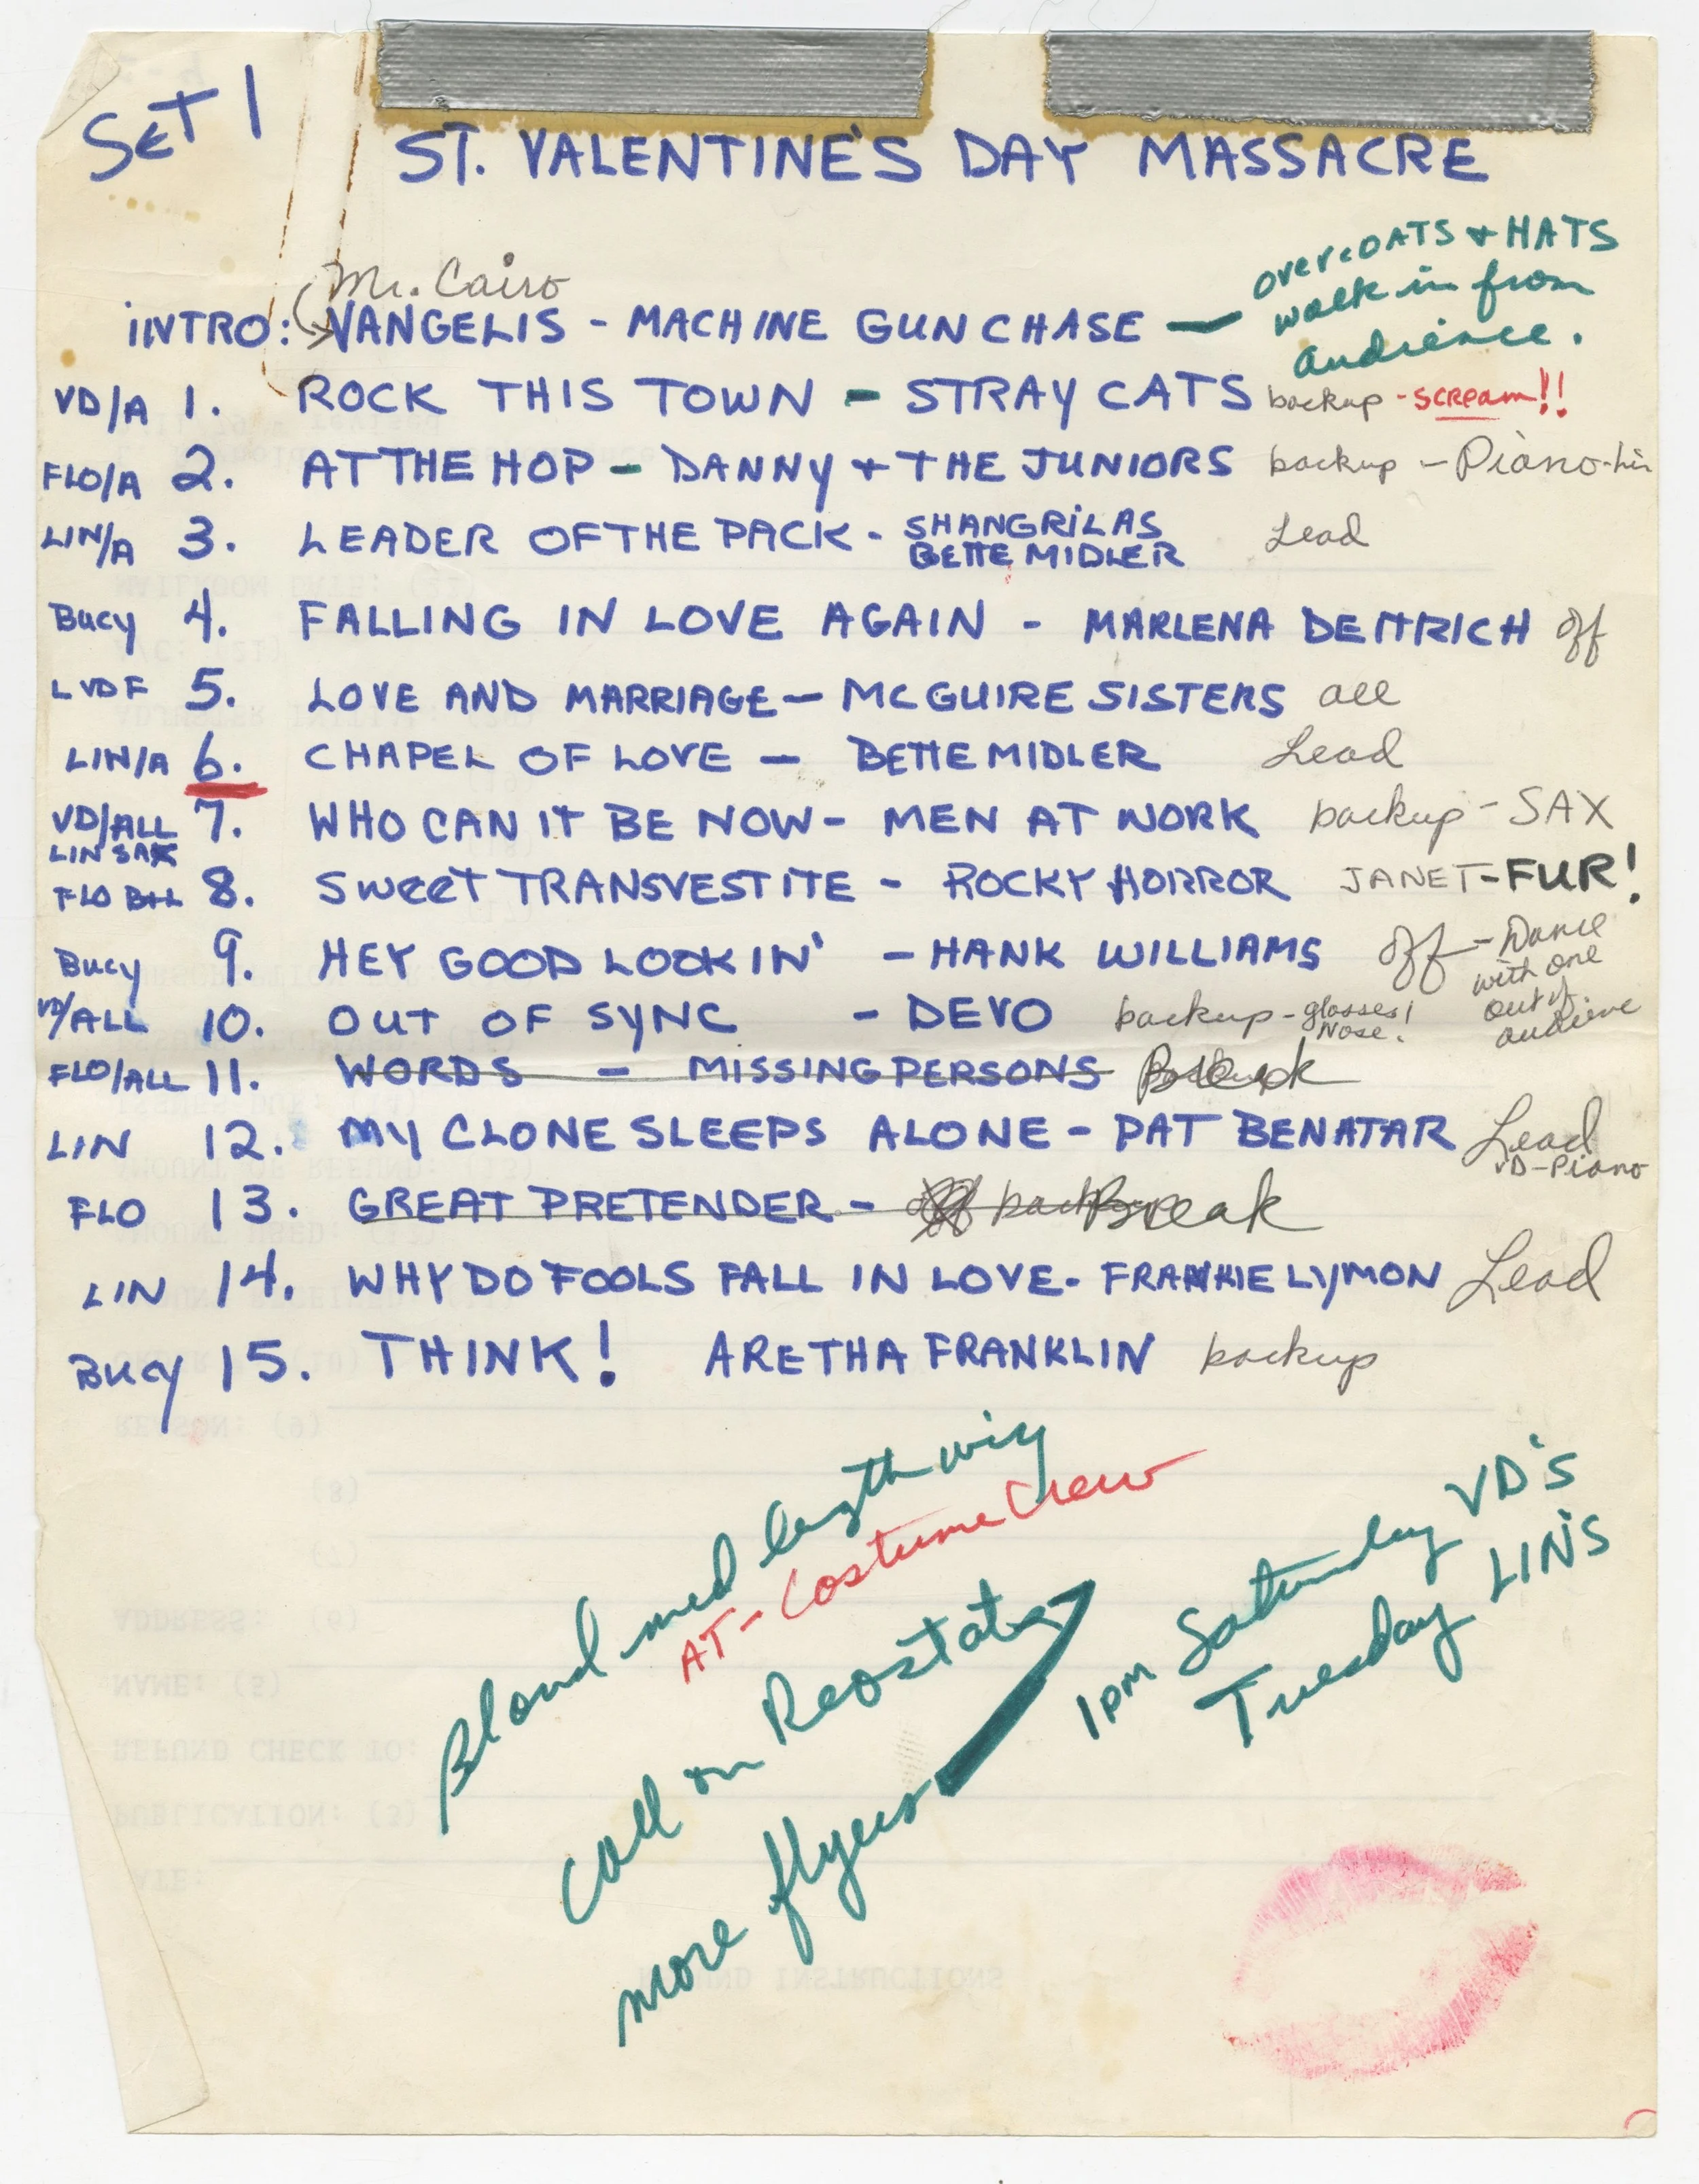 SET 1
ST. VALENTINE'S DAY MASSACRE
overcOATS + HATS
walk in from
audience.
Mr. Cairo
iNTRO: VANGELIS - MACHINE GUN CHASE —
VD/A 1. ROCK THIS TOWN - STRAY CATS backup - scream!!
FLO/A 2. AT THE HOP - DANNY + THE JUNIORS backup - Piano-lin
LIN/A 3. LEADER OF THE PACK - SHANGRiLAS Lead
BETTE MIDLER
Bucy 4. FALLING IN LOVE AGAIN - MARLENA DEITRICH off
LVDF 5. LOVE AND MARRIAGE - MCGUIRE SISTERS all
LIN/A 6. CHAPEL OF LOVE - BETTE MIDLER Lead
VD/ALL 7. WHO CAN IT BE NOW - MEN AT WORK backup - SAX
LIN SAX
FLO B+L 8. SWEET TRANSVESTITE - ROCKY HORROR JANET-FUR!
Bucy 9. HEY GOOD LOOKIN' - HANK WILLIAMS off - Dance
with one
out of
audience
VD/ALL 10. OUT OF SYNC - DEVO backup - glasses!
Nose!
FLO/ALL 11. WORDS - MISSING PERSONS Break
LIN 12. MY CLONE SLEEPS ALONE - PAT BENATAR Lead
VD-Piano
FLO 13. GREAT PRETENDER - off backup Break
LIN 14. WHY DO FOOLS FALL IN LOVE - FRANKIE LYMON Lead
Bucy 15. THINK! ARETHA FRANKLIN backup
Blond med length wig
AT - Costume Crew
Call on Reostats
more flyers
1pm Saturday VD's
Tuesday LIN'S
REASON: (9)
(8)
(7)
ADDRESS: (6)
NAME: (5)
REFUND CHECK TO:
PUBLICATION: (3)